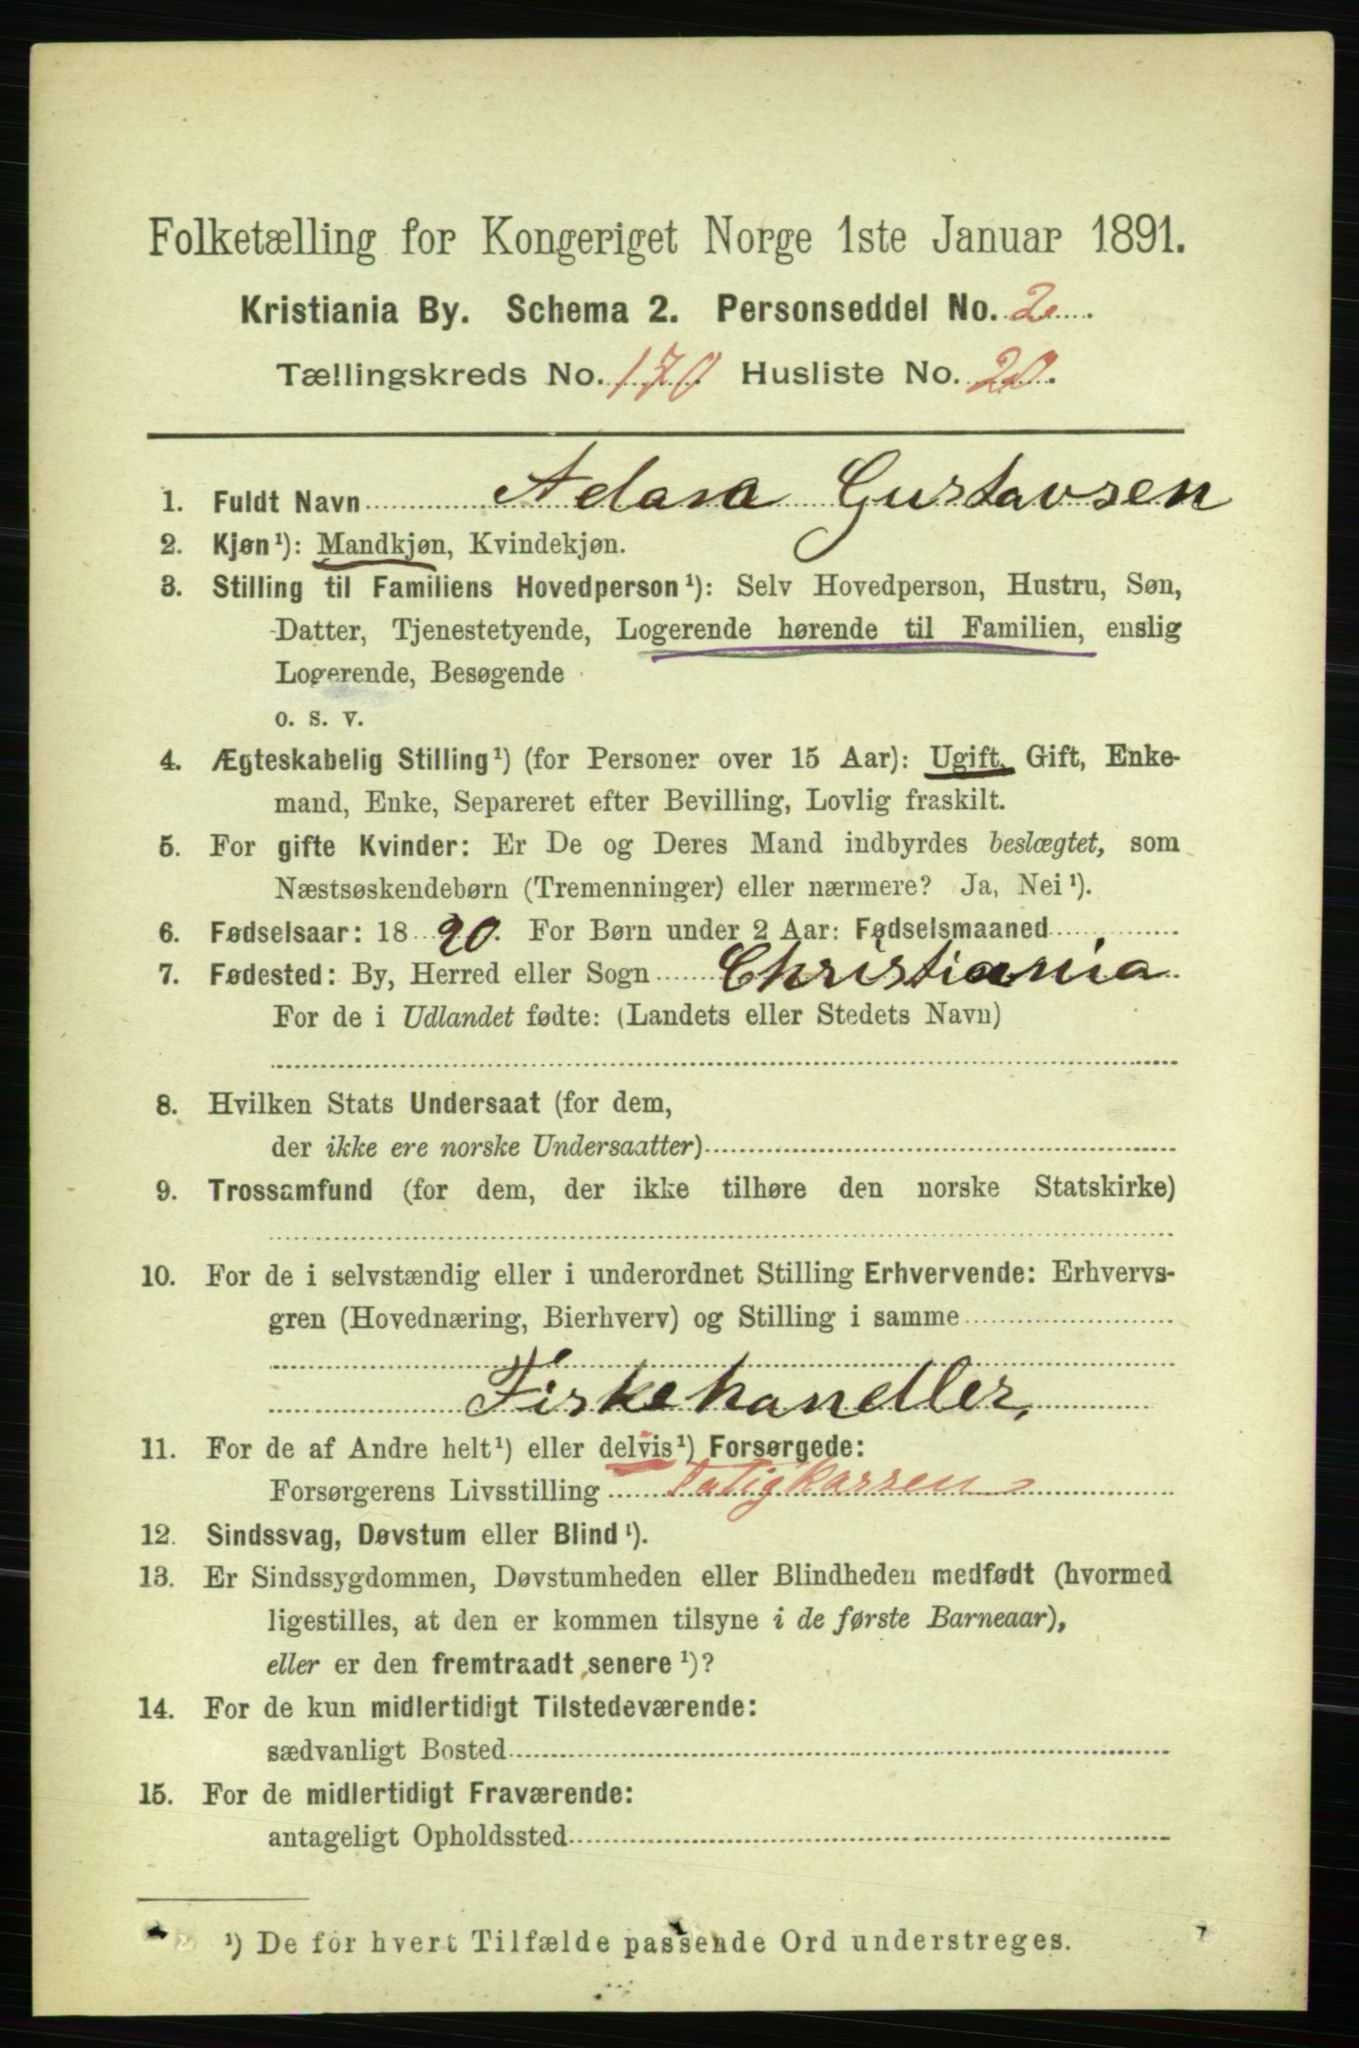 Folketælling for Kongeriget Norge 1ste Januar 1891.
Kristiania By. Schema 2. Personseddel No. 2.
Tællingskreds No. 170. Husliste No. 20.
1. Fuldt Navn Gustavsen
2. Kjøn¹): Mandkjøn, Kvindekjøn.
3. Stilling til Familiens Hovedperson¹): Selv Hovedperson, Hustru, Søn,
Datter, Tjenestetyende, Logerende hørende til Familien, enslig
Logerende, Besøgende
o. s. v.
4. Ægteskabelig Stilling¹) (for Personer over 15 Aar): Ugift, Gift, Enke-
mand, Enke, Separeret efter Bevilling, Lovlig fraskilt.
5. For gifte Kvinder: Er De og Deres Mand indbyrdes beslægtet, som
Næstsøskendebørn (Tremenninger) eller nærmere? Ja, Nei¹).
6. Fødselsaar: 1820. For Børn under 2 Aar: Fødselsmaaned
7. Fødested: By, Herred eller Sogn Christiania
For de i Udlandet fødte: (Landets eller Stedets Navn)
8. Hvilken Stats Undersaat (for dem,
der ikke ere norske Undersaatter)
9. Trossamfund (for dem, der ikke tilhøre den norske Statskirke)
10. For de i selvstændig eller i underordnet Stilling Erhvervende: Erhvervs-
gren (Hovednæring, Bierhverv) og Stilling i samme
Fiskehandler,
11. For de af Andre helt¹) eller delvis¹) Forsørgede:
Forsørgerens Livsstilling Fatigkassen
12. Sindssvag, Døvstum eller Blind¹).
13. Er Sindssygdommen, Døvstumheden eller Blindheden medfødt (hvormed
ligestilles, at den er kommen tilsyne i de første Barneaar),
eller er den fremtraadt senere¹)?
14. For de kun midlertidigt Tilstedeværende:
sædvanligt Bosted
15. For de midlertidigt Fraværende:
antageligt Opholdssted
¹) De for hvert Tilfælde passende Ord understreges.